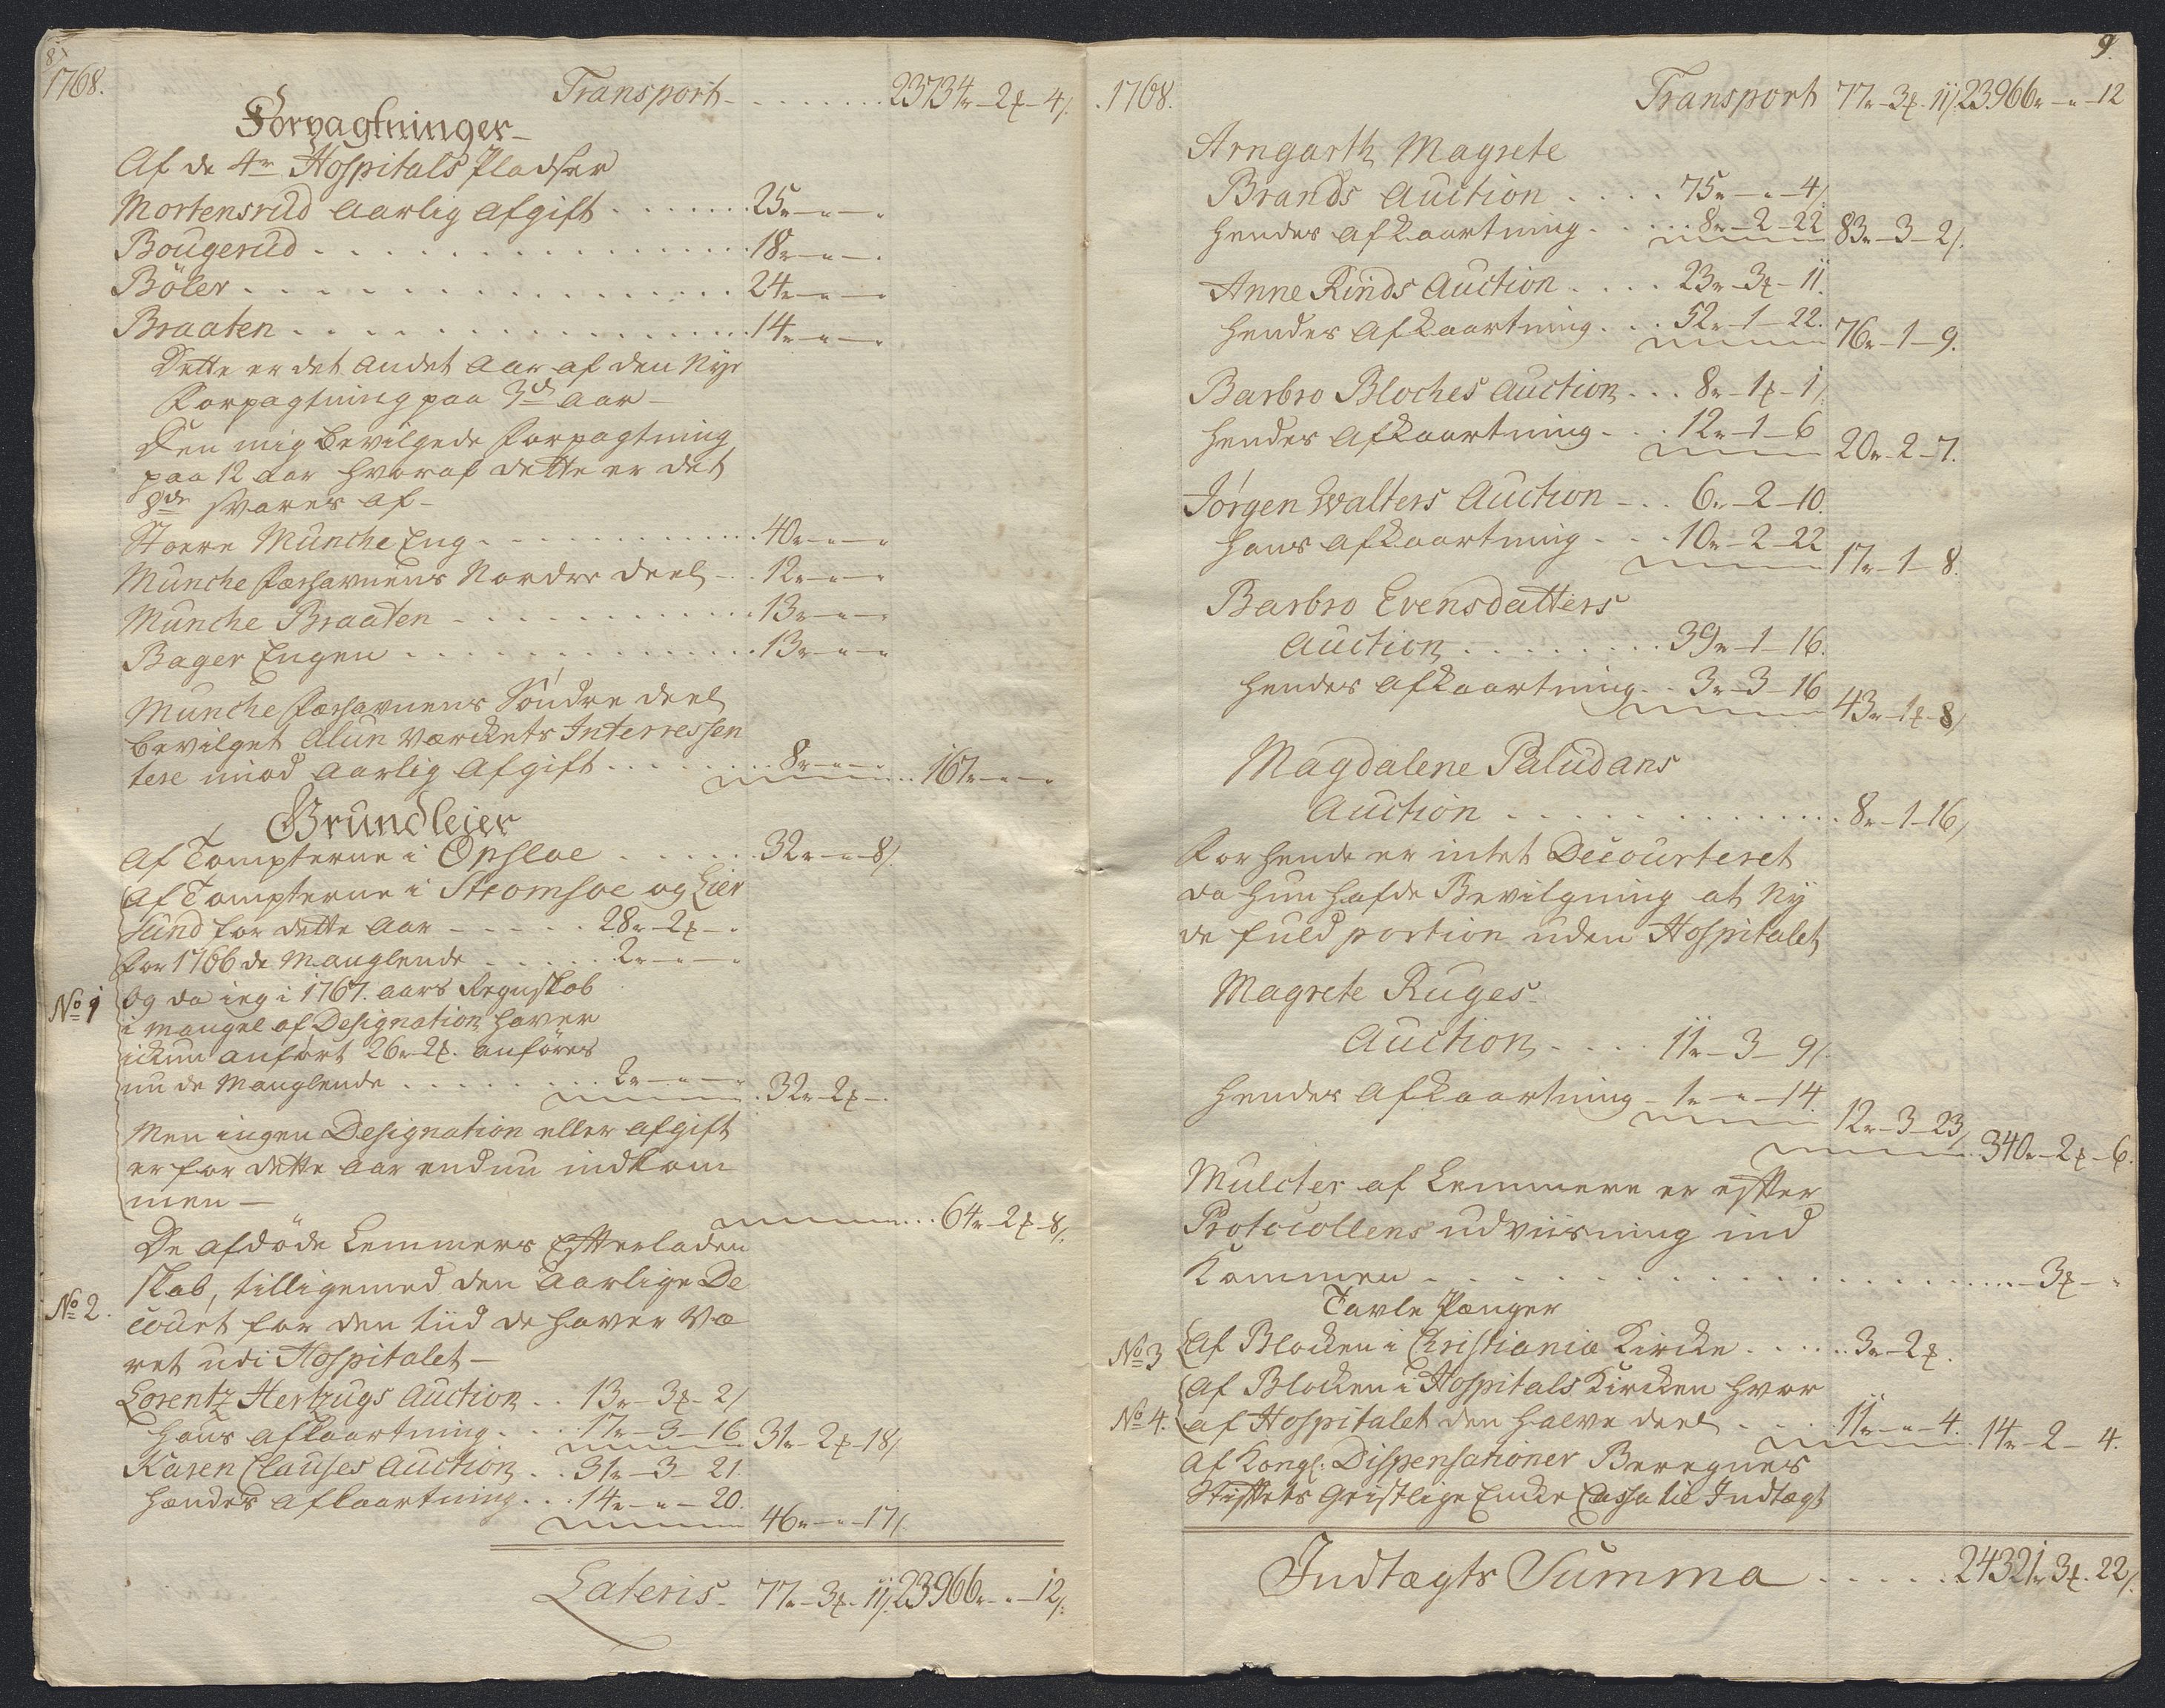 8)
1768.
Transport - . . . . . . . 23734r - 2 ƶ - 4 /.
Forpagtninger -
Af de 4re Hospitals Pladser
Mortensrud aarlig Afgift . . . . . . . 25r - " - "
Bougerud . . . . . . . . . . . . . 18r - " - "
Böler . . . . . . . . . . . . . . . 24r - " - "
Braaten . . . . . . . . . . . . . . 14r - " - "
Dette er det Andet Aar af den Nye
Forpagtning paa 3de Aar -
Den mig bevilgede Forpagtning
paa 12 Aar hvoraf dette er det
8de svares af -
Stoere Munche Eng . . . . . . . . . . . 40r - " - "
Munche Fæhavnens Nordre Deel - . . 12r - " - "
Munche Braaten - . . . . . . . . . . 13r - " - "
Bager Engen . . . . . . . . . . . . . 13r - " - "
Munche Fæhavnens Söndre Deel
bevilget Alun Værckets Interressen
tere imod aarlig Afgift . . . . . . . . 8r - " - " . . 167r - " - "
Grundleier
Af Tompterne i Opsloe . . . . . . . 32r - " - 8 /.
Af Tompterne i Strömsoe og Lier
Sund for dette Aar - - - - . . 28r - 2 ƶ - "
For 1766 de Manglende . . . . . . 2r - " - "
No 1 Og da ieg i 1767. Aars Regnskab
i mangel af Designation haver
ickun anfört 26r 2 ƶ. anföres
nu de Manglende . . . . . . . . . 2r - " - " . 32r - 2 ƶ - "
Men ingen Designation eller Afgift
er for dette Aar endnu indkom
men - . . . 64r - 2 ƶ - 8 /.
De afdöde Lemmers Efterladen
skab, tilligemed den Aarlige De
No 2. court for den tiid de haver Væ
ret udi Hospitalet -
Lorentz Hertzugs Auction . . 13r - 3 ƶ - 2 /
Hans afkaartning . . . 17r - 3 - 16 31r - 2 ƶ - 18 /.
Karen Clauses Auction . . 31r - 3 - 21.
Hendes afkaartning . . . 14r - " - 20. 46r - " - 17 /.
Lateris - 77r - 3 ƶ - 11 /. 23966r - " - 12 /.
9.
1768.
Transport 77r - 3 ƶ. 11 /. 23966r - " - 12
Arngarth Magrete
Brands Auction . . . . 75r - " - 4 /.
Hendes afkaartning . . . . . 8r - 2 - 22 83r - 3 - 2 /.
Anne Rinds Auction . . . . 23r - 3 ƶ - 11.
Hendes afkaartning . . . 52r - 1 - 22. 76r - 1 - 9.
Barbro Bloches Auction . . . 8r - 1 ƶ - 1 /.
Hendes afkaartning - . . 12r - 1 - 6 20r - 2 - 7.
Jörgen Walters Auction - . . 6r - 2 - 10.
Hans afkaartning - . . . 10r - 2 - 22 17r - 1 - 8.
Barbro Evensdatters
Auction . . . . . . . . . 39r - 1 - 16.
Hendes afkaartning . . 3r - 3 - 16 43r - 1 ƶ - 8 /
Magdalene Paludans
Auction . . . . . . . . . . . . . . 8r - 1 - 16 /
For hende er intet Decourteret
da hun hafde Bevilgning at Ny
de fuld portion uden Hospitalet
Magrete Ruges -
Auction - . . . 11r - 3 - 9 /.
Hendes afkaartning - 1r - " - 14. 12r - 3 - 23 /
340r - 2 ƶ - 6.
Mulcter af Lemmerne er efter
Protocollens udviisning ind
Kommen . . . . . . . . . . . . . . . . . . . . - 3 ƶ - "
Tavle Penger
No 3 Af Blocken i Christiania Kircke . . . . . 3r - 2 ƶ.
Af Blocken i Hospitals Kircken hvor
No 4. af Hospitalet den halve deel . . . . 11r - " - 4. 14r - 2 - 4.
Af Kongl. Dispensationer Beregnes
Stiftets Geistlige Encke Cassa til Indtægt
Indtægts Summa . . . . . 24321r 3 ƶ. 22 /.